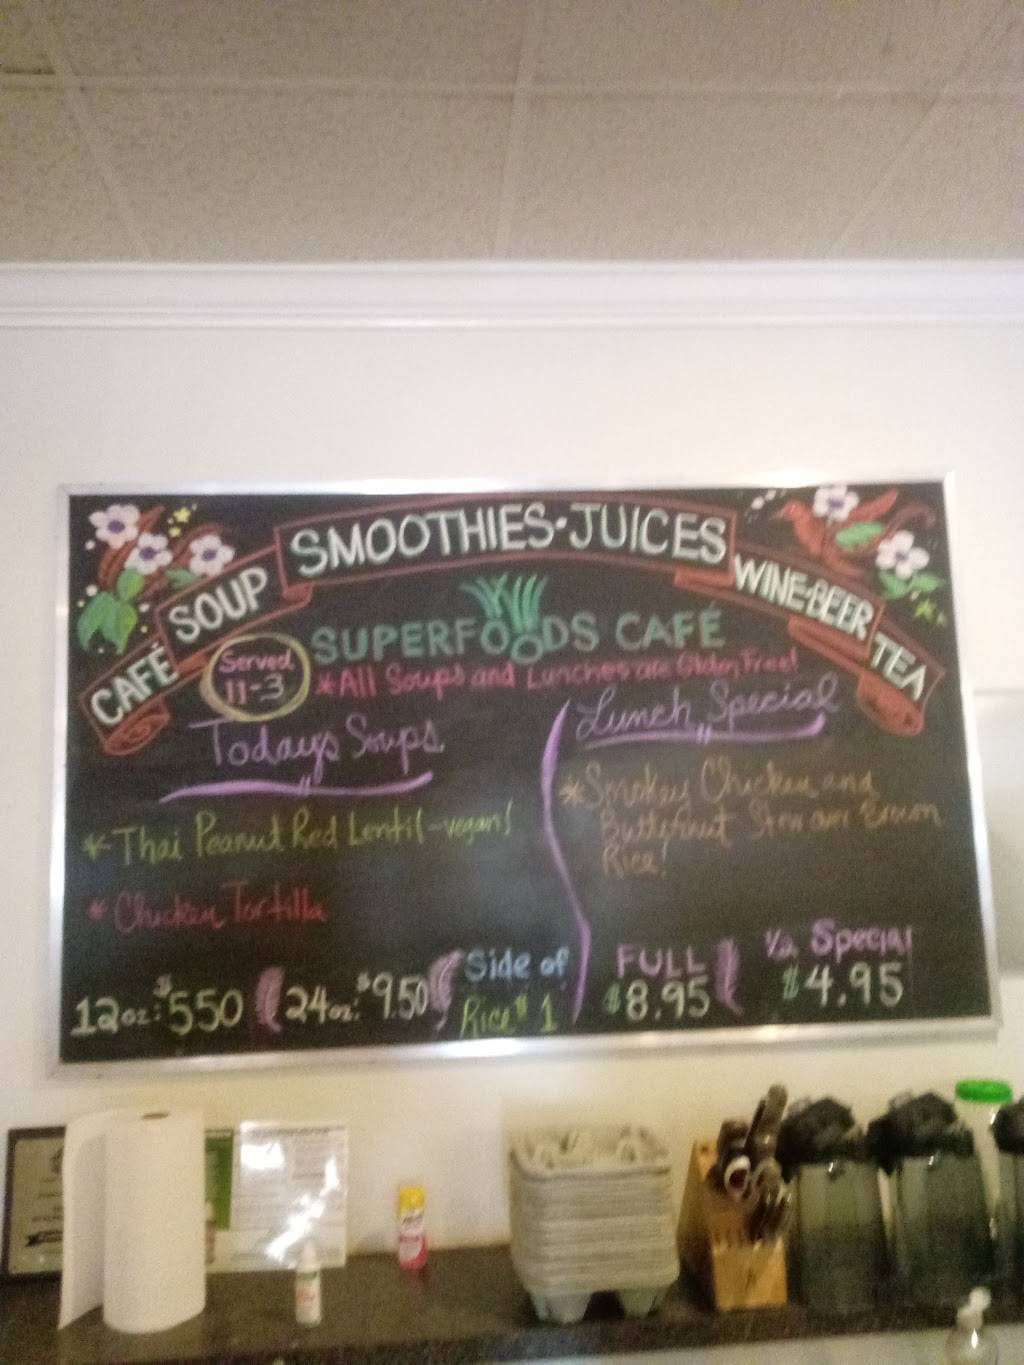 CAFÉ SOUP SMOOTHIES·JUICES WINE·BEER TEA
SUPERFOODS CAFÉ
Served
11-3
*All Soups and Lunches are Gluten Free!
Todays Soups
*Thai Peanut Red Lentil -vegan!
*Chicken Tortilla
12oz: $550
24oz: $9.50
Side of
Rice $1
Lunch Special
*Smokey Chicken and
Butternut Stew over Brown
Rice!
FULL
$8.95
1/2 Special
$4.95